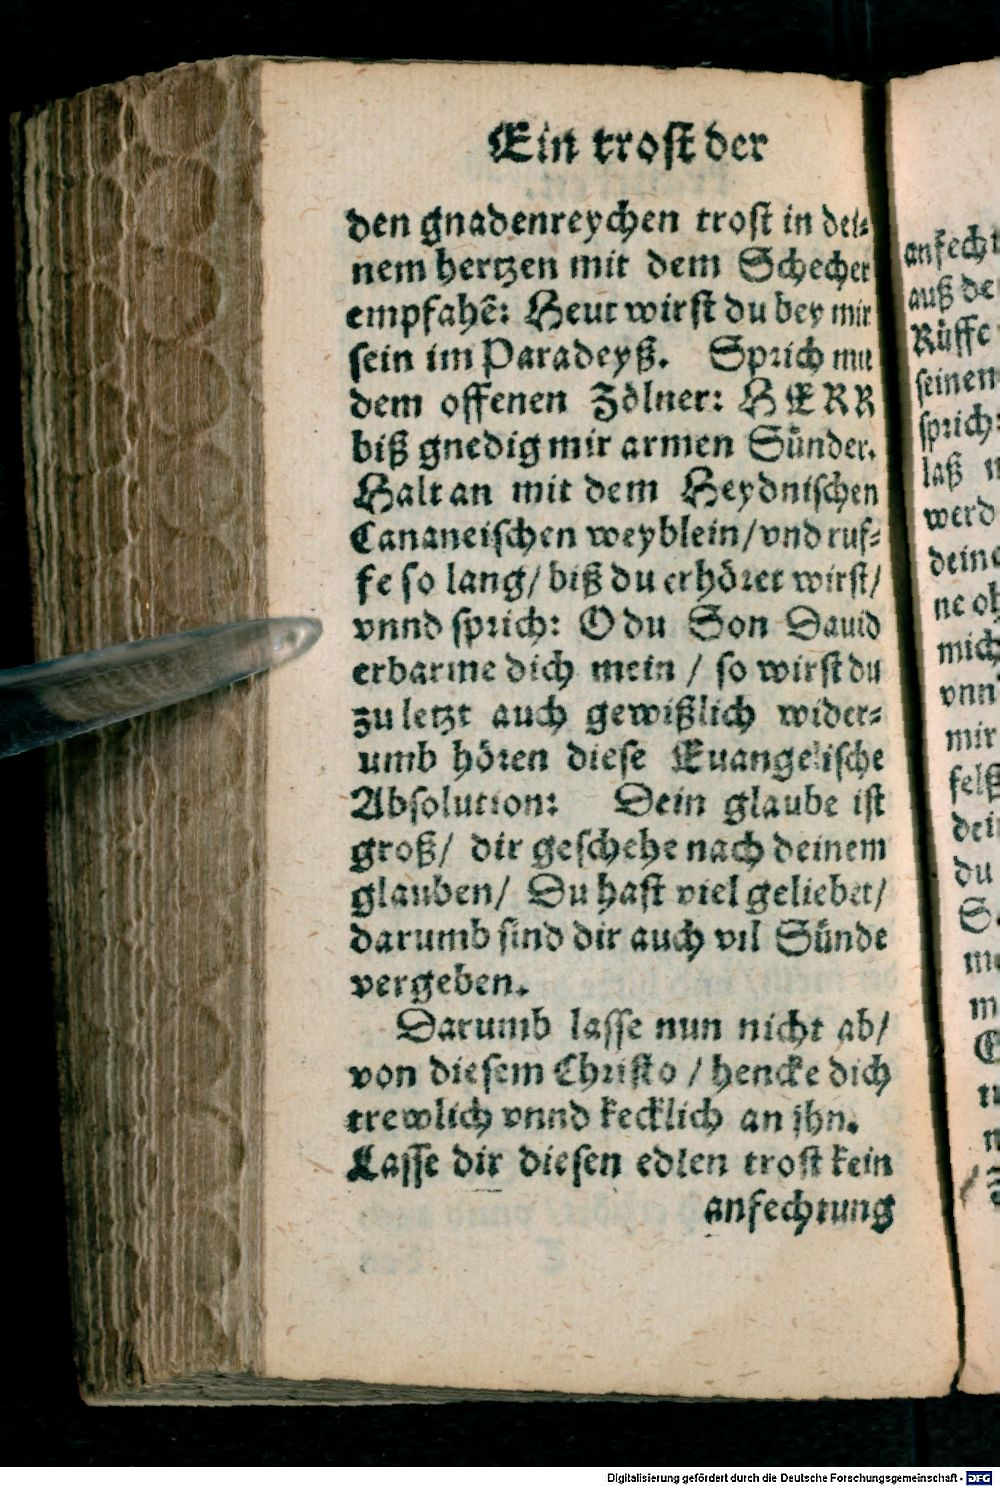 Ein trost der
den gnadenreychen trost in dei⸗
nem hertzen mit dem Schecher
empfahẽ: Heut wirst du bey mir
sein im Paradeyß. Sprich mit
dem offenen Zölner: HERR
biß gnedig mir armen Sünder.
Halt an mit dem Heydnischen
Cananeischen weyblein/vnd ruf⸗
fe so lang/ biß du erhöret wirst/
vnnd sprich: O du Son Dauid
erbarme dich mein / so wirst du
zu letzt auch gewißlich wider⸗
umb hören diese Euangelische
Absolution: Dein glaube ist
groß/ dir geschehe nach deinem
glauben/ Du hast viel geliebet/
darumb sind dir auch vil Sünde
vergeben.
Darumb lasse nun nicht ab/
von diesem Christo / hencke dich
trewlich vnnd kecklich an jhn.
Lasse dir diesen edlen trost kein
anfechtung
anfecht
auß de
Rüffe
seinen
sprich:
laß
werd
dein
ne
mich
vnn
mir
felß
dei
du
Digitalisierung gefördert durch die Deutsche Forschungsgemeinschaft - DFG